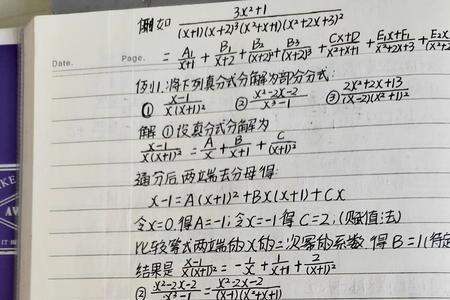 例如 (3x²+1)/((x+1)(x+2)³(x²+x+1)(x²+2x+3)²)
Date. Page. = A₁/(x+1) + B₁/(x+2) + B₂/(x+2)² + B₃/(x+2)³ + (Cx+D)/(x²+x+1) + (E₁x+F₁)/(x²+2x+3) + E₂x
例1.将下列真分式分解为部分分式:
① (x-1)/(x(x+1)²) ② (x²-2x-2)/(x³-1) ③ (2x²+2x+13)/((x-2)(x²+1)²)
解 ①设真分式分解为
(x-1)/(x(x+1)²) = A/x + B/(x+1) + C/(x+1)²
通分后,两端去分母得:
x-1=A(x+1)²+Bx(x+1)+Cx
令x=0.得A=-1;令x=-1得C=2,(赋值法)
比较等式两端的x的二次幂的系数 得B=1(待定
结果是 (x-1)/(x(x+1)²) = -1/x + 1/(x+1) + 2/(x+1)²
② (x²-2x-2)/(x³-1) = (x²-2x-2)/((x-1)(x²+x+1))